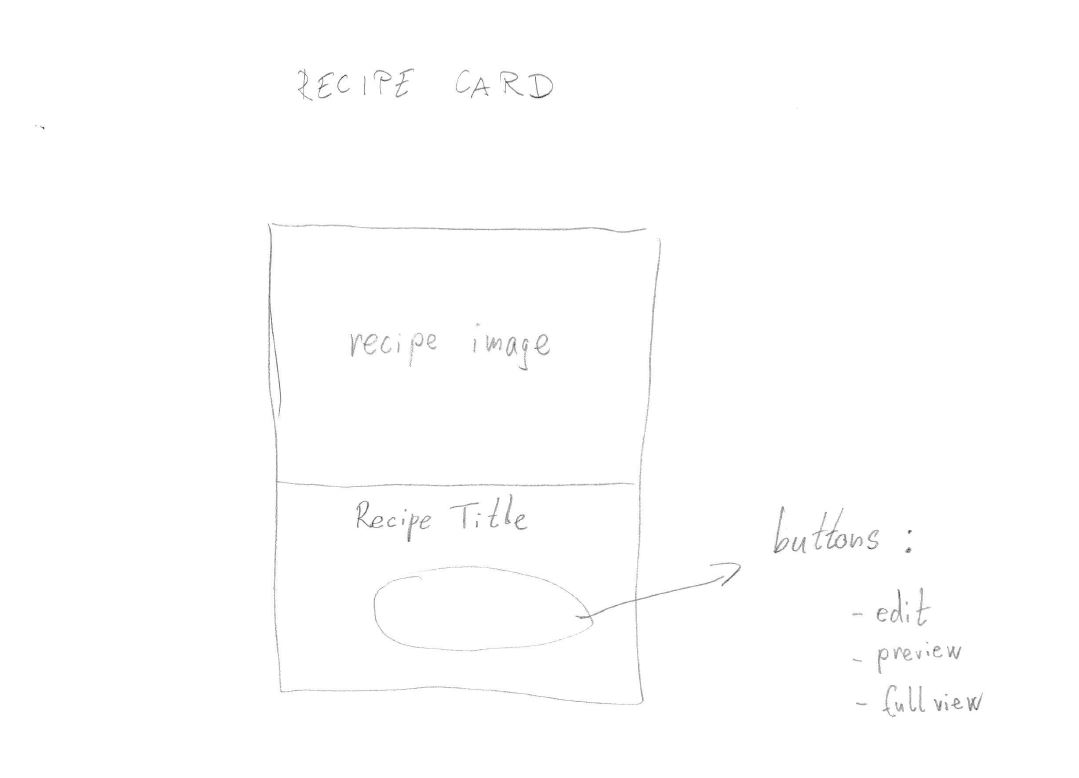 RECIPE CARD
recipe image
Recipe Title
buttons :
- edit
- preview
- full view